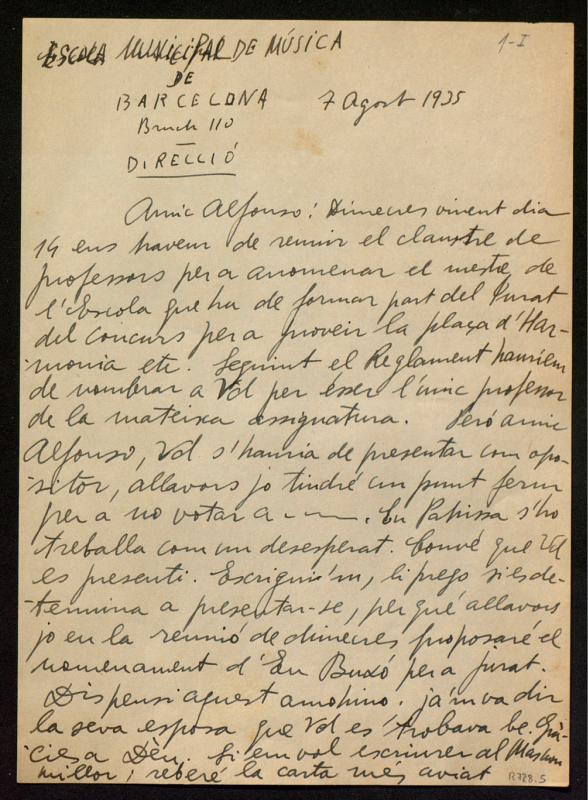 ESCOLA MUNICIPAL DE MÚSICA
DE
BARCELONA
Bruch 110
DIRECCIÓ
1-I
7 Agost 1935
Amic Alfonso: Dimecres vinent dia
14 ens havem de reunir el claustre de
professors per a anomenar el mestre de
l'Escola que ha de formar part del Jurat
del Concurs per a proveir la plaça d'Har-
monia etc. Seguint el Reglament hauríem
de nombrar a Vd per ésser l'únic professor
de la mateixa assignatura. Però amic
Alfonso, Vd s'hauria de presentar com opo-
sitor, allavors jo tindré un punt ferm
per a no votar a ——. En Pahissa s'ho
treballa com un desesperat. Convé que Vd
es presenti. Escrigui'm, li prego si es de-
termina a presentar-se, perquè allavors
jo en la reunió de dimecres proposaré el
nomenament d'En Buxó per a jurat.
Dispensi aquest amohino. ja m va dir
la seva esposa que Vd es trobava be. Grà-
cies a Déu. Si em vol escriurer al Masnou
millor; reberé la carta més aviat
R.728.5